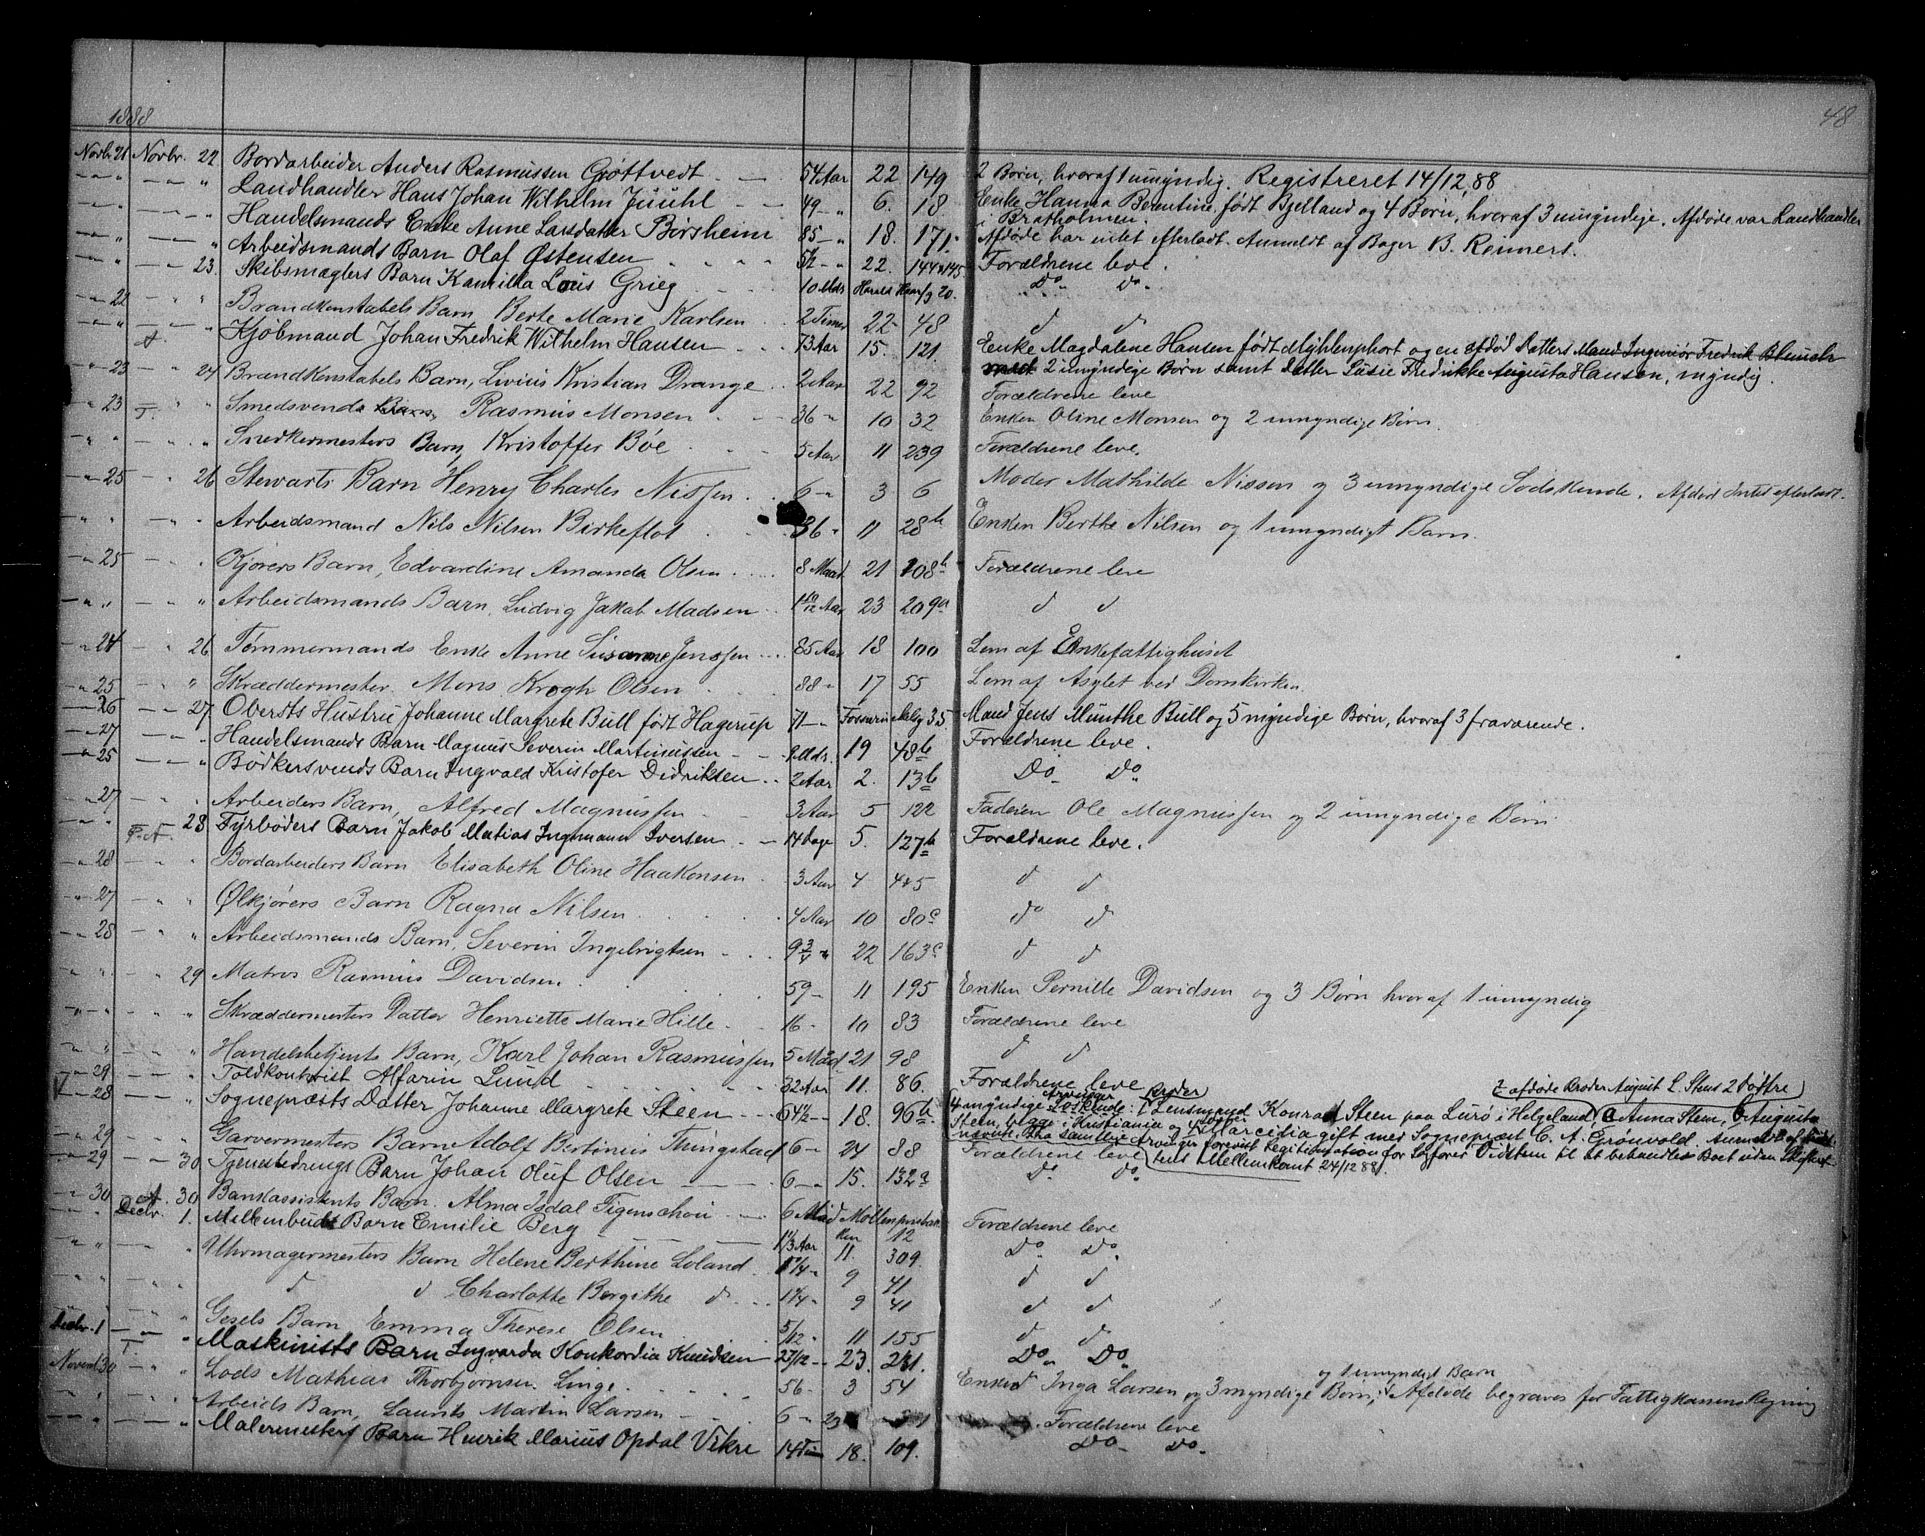 1888
48
Novbr. 21 Novbr. 22 Bordarbeider Anders Rasmussen Gröttvedt 54 Aar 22 149 2 Børn, hvoraf 1 umyndig. Registreret 14/12, 88
" " " Landhandler Hans Johan Wilhelm Jüühl 49 " 6. 18 Enke Hanna Berentine født Bjelland og 4 Børn, hvoraf 3 umyndige. Afdøde var Landhandler
i Bratholmen.
" " " Handelsmands Enke Anne Larsdatter Börsheim 85 " 18. 171. Afdøde har intet efterladt. Anmeldt af Bager B. Reimers.
" " " Arbeidsmands Barn Olaf Østensen 5½ " 22. 144 145 Forældrene leve.
" " 23. Skibsmæglers Barn Kamilla Louis Grieg 10 Mdr Harald Haarfg 20. Do. Do.
" 22 " " Brandkonstabels Barn Berte Marie Karlsen 2 Timer 22 48 d d
" " A. " Kjøbmand Johan Fredrik Wilhelm Hansen 73 Aar 15. 121. Enke Magdalene Hansen født Myhlenphort og en afdød Datters Mand Ingeniør Fredrik
2 umyndige Børn samt Datter Susie Fredrikke Augusta Hansen, myndig.
" 23 " 24 Brandkonstabels Barn, Livius Kristian Drange 2 Aar 22 92 Forældrene leve
" 23 T. " Smedsvend Rasmus Monsen 36 " 10 32 Enken Oline Monsen og 2 umyndige Børn
" " " Snedkermesters Barn, Kristoffer Böe 5 Aar 11 239 Forældrene leve.
" 25 " 26 Stewarts Barn Henry Charles Nissen 6 " 3 6 Moder Mathilde Nissen og 3 umyndige Sødskende. Afdød Intet efterladt.
" " " Arbeidsmand Nils Nilsen Birkeflot 36 " 11 28 b Enken Berthe Nilsen og 1 umyndigt Barn.
" 25 " " Kjørers Barn, Edvardine Amanda Olsen 8 Maad 21 208 b Forældrene leve
" " " Arbeidsmands Barn, Ludvig Jakob Madsen 1 10/12 Aar 23 209 a d d
" 24 " 26 Tømmermands Enke Anne Susanne Jenssen 85 Aar 18 100 Lem af Enkefattighuset
" 25 " " Skræddermester Mons Krogh Olsen 88 " 17 55 Lem af Asylet ved Domkirken.
" 26 " 27 Obersts Hustru Johanne Margrete Bull født Hagerup 71 " Fosswinckelsg 35. Mand Jens Munthe Bull og 5 myndige Børn, hvoraf 3 fraværende.
" 27 " " Handelsmands Barn Magnus Severin Martinussen Mdr. 19 48 b Forældrene leve.
" 25 " " Bødkersvends Barn Ingvald Kristofer Didriksen 2 Aar 2. 13 b Do Do.
" 27 " " Arbeiders Barn, Alfred Magnussen 3 Aar 5 122 Faderen Ole Magnussen og 2 umyndige Børn
" " F. A. 28 Fyrbøders Barn Jakob Matias Ingemann Iversen 14 Dage 5. 127 b Forældrene leve.
" 28 " " Bordarbeiders Barn Elisabeth Oline Haakonsen 3 Aar 4 445 d d
" 27 " " Ølkjørers Barn Ragna Nilsen 4 Aar 10 80 c do d
" 28 " " Arbeidsmands Barn, Severin Ingebrigtsen 9 3/4 " 22 163 c d d
" " " 29 Matros Rasmus Davidsen 59 " 11 195 Enken Pernille Davidsen og 3 Børn hvoraf 1 umyndig
" " " Skræddermesters Datter Henriette Marie Hille 16 " 10 83 Forældrene leve
" " " Handelsbetjents Barn, Karl Johan Rasmussen 5 Maad 21 98 d d
" 29 " " Toldkontorist Alfarin Lund 32 Aar 11. 86. Forældrene leve
V " 28 " " Sognepræsts Datter Johanne Margrete Steen 64½ " 18. 96 b. 4 myndige Arvinger: 1 Broder Lensmand Konrad Steen paa Lurö i Helgeland, 2 afdøde Broder August L. Stens 2 Døttre a Anna Steen, b Augusta
Steen, begge i Kristiania og Marcedia gift med Sognepræst C. A. Grönvold. Anmeldt af
samtlige Arvinger forevist Legitimation for Sagfører Vidtsen til at behandle Boet uden Skifterettens Mellemkomst 24/12 88.
" 29 " " Garvermesters Barn Adolf Bertinius Thingstad 6 " 24 88 Forældrene leve
" 29 " 30 Tjenestedrengs Barn Johan Oluf Olsen 6 " 15. 132 a Do. Do.
" 30 A. 30 Bankassistents Barn. Alma Isdal Tigenschou 6 Mdd Möllenprisbakken 12 Forældrene leve
" " Decbr. 1. Mellembuds Barn Emilie Berg 1 1/3 Aar 11. 309. Do. Do.
" " " Uhrmagermesters Barn Helene Berthine Loland 1 1/4 " 9 41 d d
" " " d d Charlotte Bergithe d 1 1/4 " 9 41 d d
" " " Gesels Barn Emma Therese Olsen 5/12 " 11 155 d d
Decbr. 1 T. " Maskinists Barn Ingvarda Konkordia Knudsen 27/12 " 23. 231. Do. Do.
Novemb. 30 " " Lods Mathias Thorbjørnsen Linge 56 " 3 54 Enken Inga Larsen og 3 myndige Børn, og 1 umyndigt Barn Afdøde begraves for Fattigkassens Regning
" " " Arbeids Barn, Laurits Martin Larsen 6 " 23 Forældrene leve
" " " Malermesters Barn Henrik Marius Opdal Vikre 14 Tim 18. 109. Do. Do.